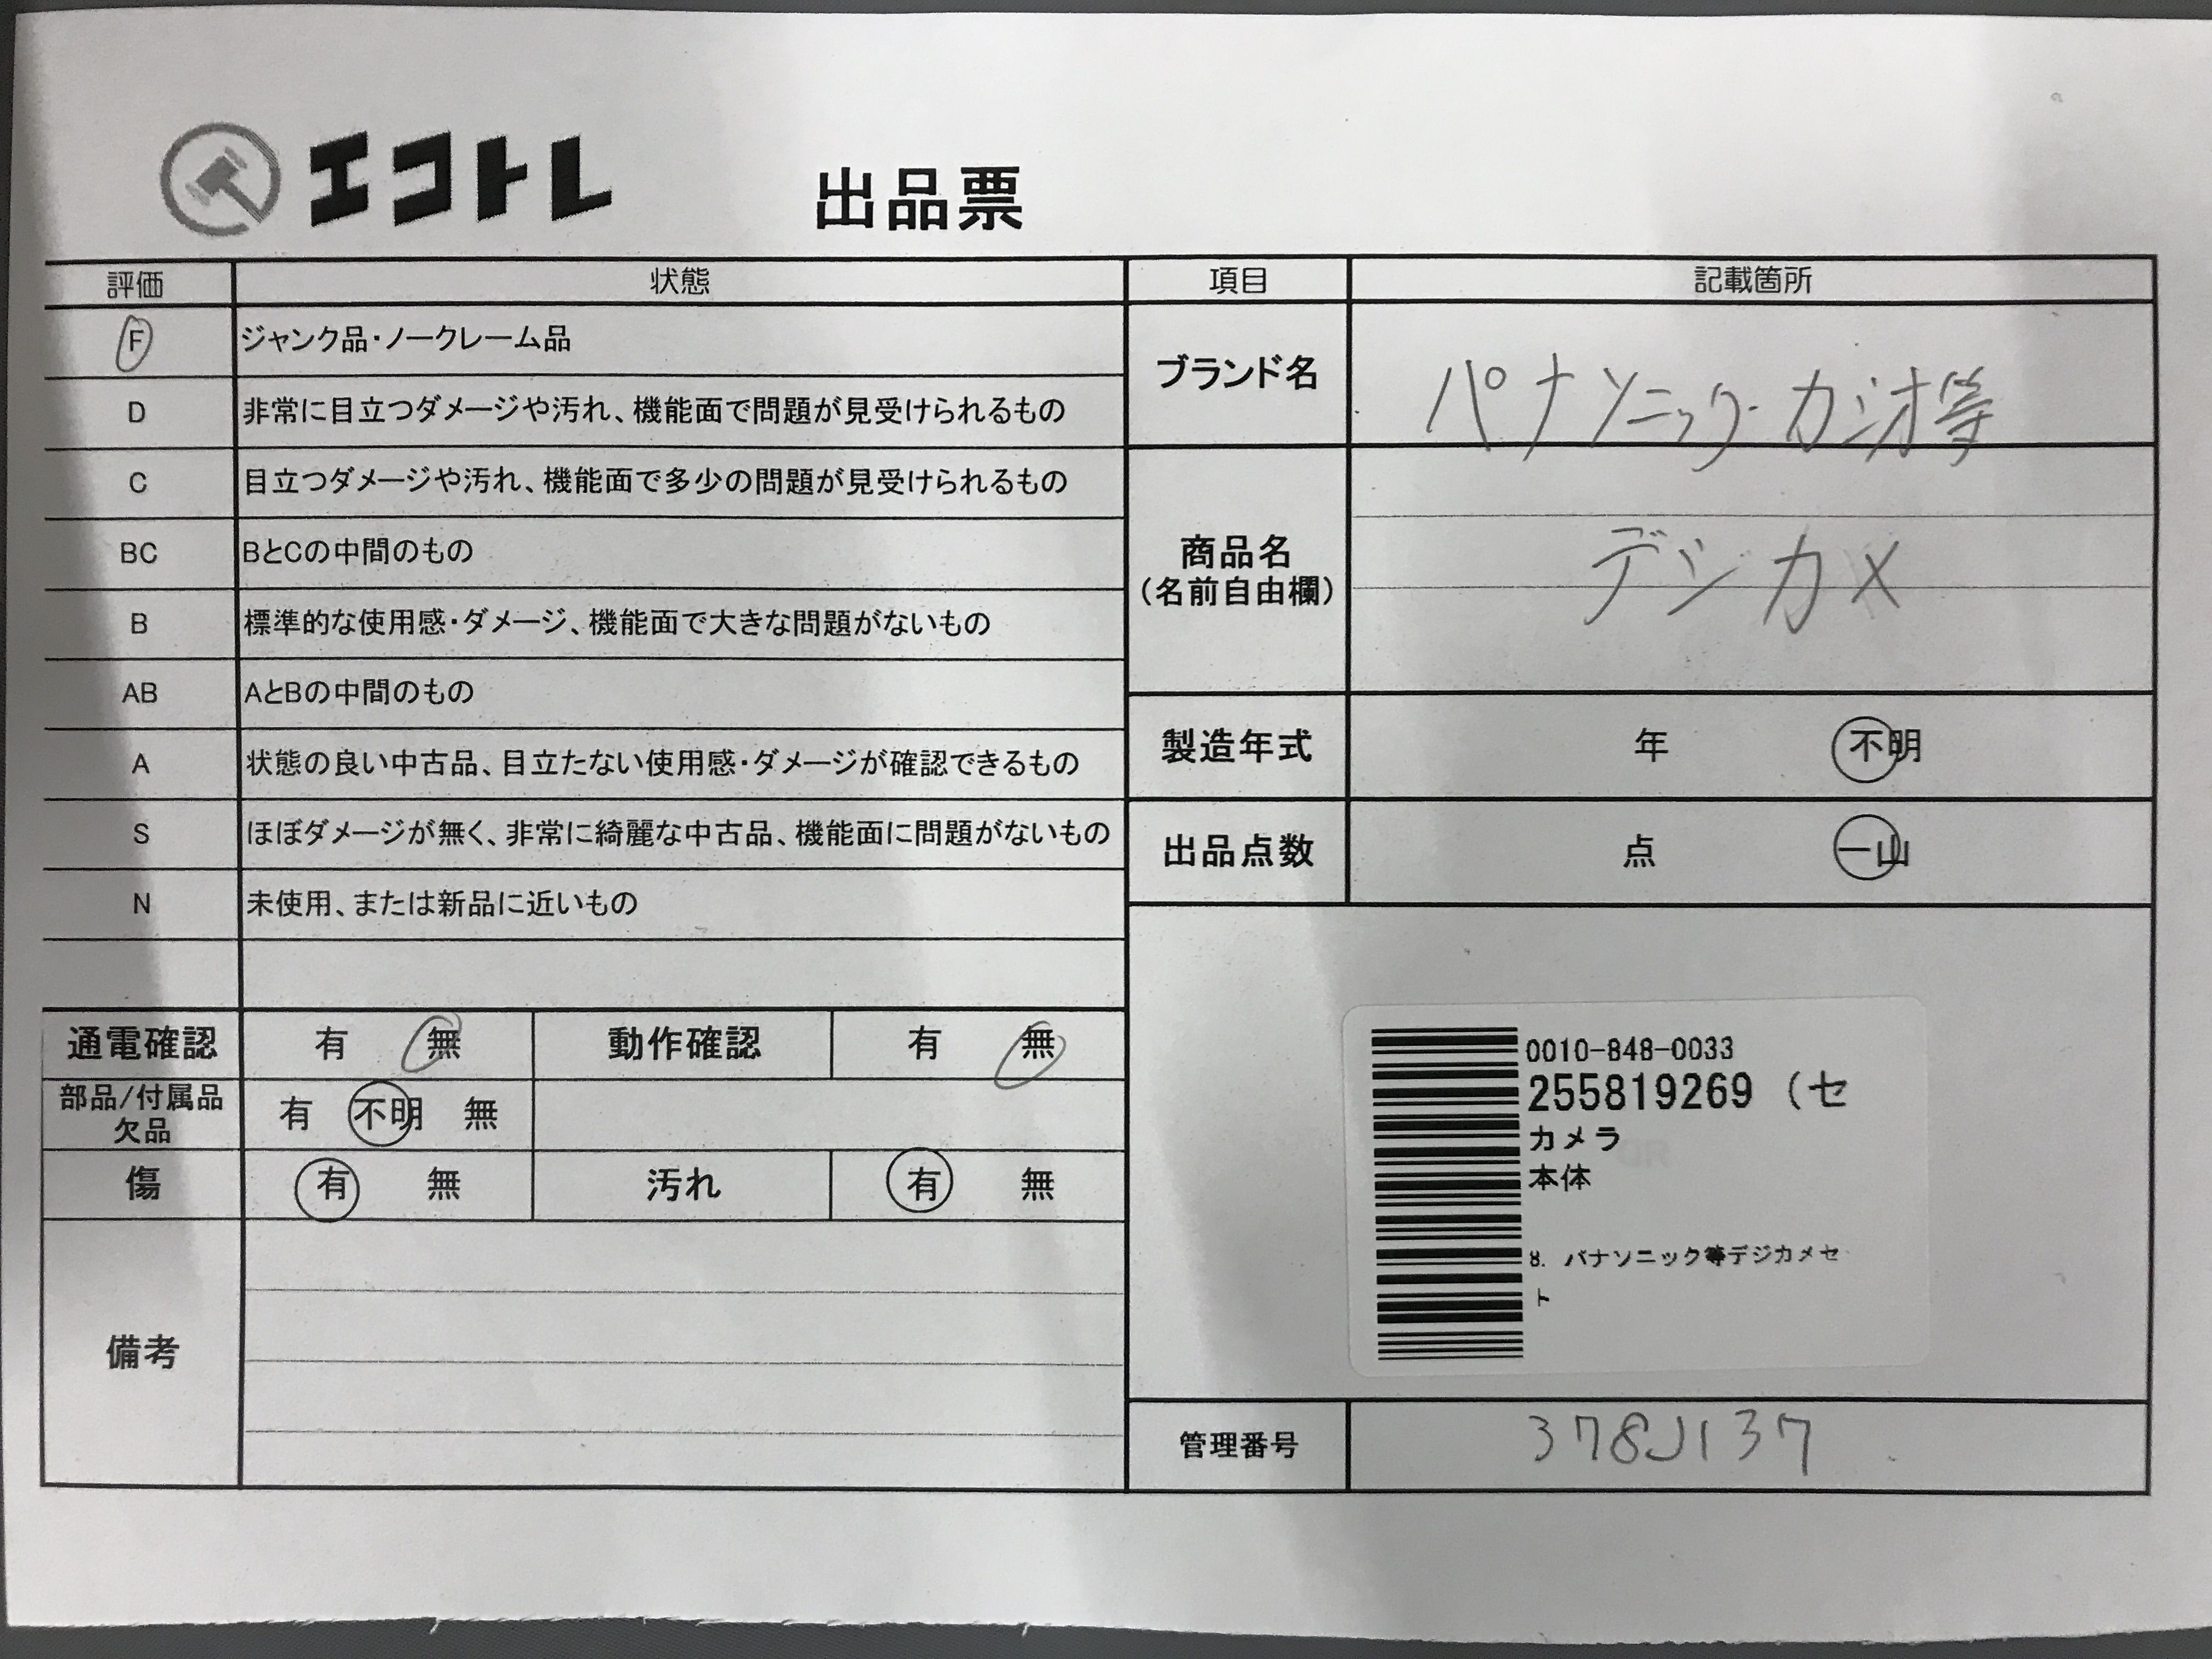 エコトレ 出品票
評価 状態
F ジャンク品・ノークレーム品
D 非常に目立つダメージや汚れ、機能面で問題が見受けられるもの
C 目立つダメージや汚れ、機能面で多少の問題が見受けられるもの
BC BとCの中間のもの
B 標準的な使用感・ダメージ、機能面で大きな問題がないもの
AB AとBの中間のもの
A 状態の良い中古品、目立たない使用感・ダメージが確認できるもの
S ほぼダメージが無く、非常に綺麗な中古品、機能面に問題がないもの
N 未使用、または新品に近いもの
通電確認 有 無 動作確認 有 無
部品/付属品
欠品 有 不明 無
傷 有 無 汚れ 有 無
備考
項目 記載箇所
ブランド名 パナソニック・カシオ等
商品名
(名前自由欄) デジカメ
製造年式 年 不明
出品点数 点 一山
0010-848-0033
255819269 (セ
カメラ
本体
8. パナソニック等デジカメセ
ト
管理番号 378J137